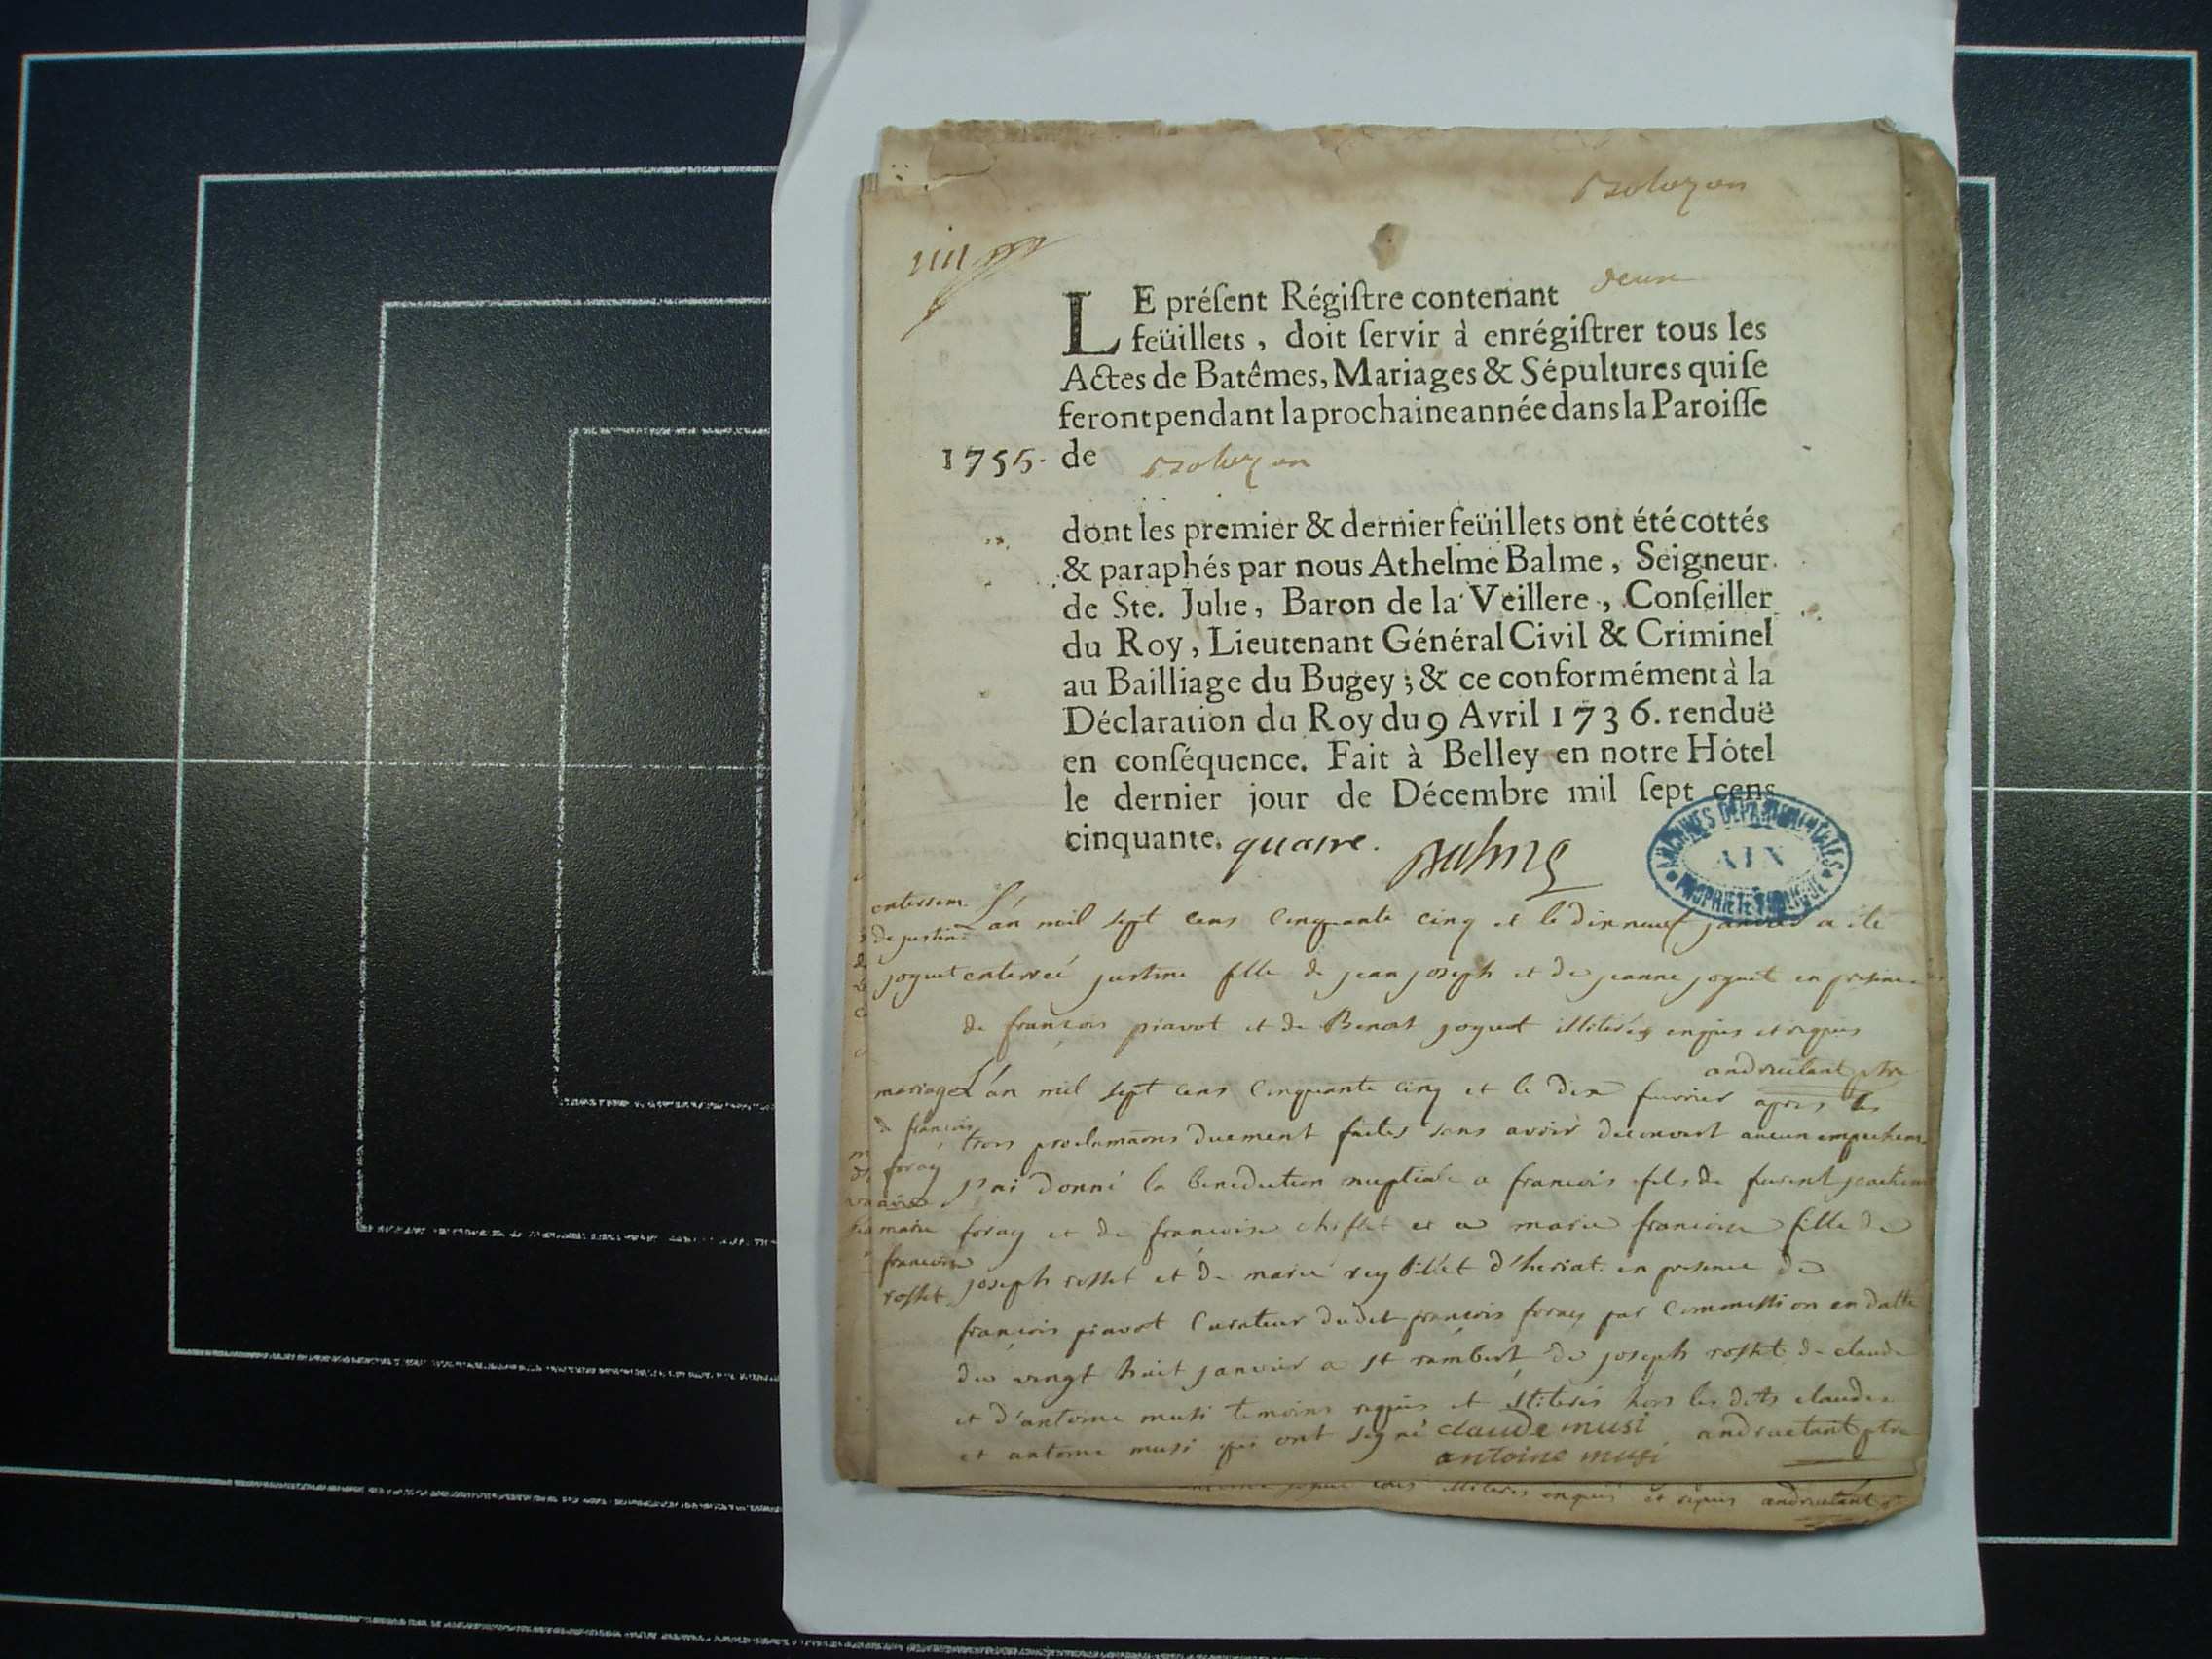 deux
LE préſent Régiſtre contenant
feüillets, doit ſervir à enrégiſtrer tous les
Actes de Batêmes, Mariages & Sépultures qui ſe
feront pendant la prochaine année dans la Paroiſſe
1755. de
dont les premier & dernier feüillets ont été cottés
& paraphés par nous Athelme Balme, Seigneur
de Ste. Julie, Baron de la Veillere, Conſeiller
du Roy, Lieutenant Général Civil & Criminel
au Bailliage du Bugey; & ce conformément à la
Déclaration du Roy du 9 Avril 1736. renduë
en conſéquence. Fait à Belley en notre Hôtel
le dernier jour de Décembre mil ſept cens
cinquante. quatre. Balme
ARCHIVES DEPARTEMENTALES
AIN
PROPRIETE PUBLIQUE
de justine
joguet
L'an mil sept cens cinquante cinq et le dixneuf janvier a ete
enterreé justine fille de jean joseph et de jeanne joguet en presence
de françois piavot et de Benoit joguet illiterés enquis et requis
mariage
de françois
foray
avec
marie
francoise
rosset
L'an mil sept cens cinquante cinq et le dix fevrier apres les
trois proclamaons duement faites sans avoir decouvert aucun empechem
j'ai donné la benediction nuptiale a francois fils de
foray et de francoise chiflet et a marie francoise fille de
joseph rosset et de marie d'heriat en presence de
françois piavot curateur dudit françois foray par commission en datte
du vingt huit janvier a st rambert de joseph rosset de claude
et d'antoine musi temoins requis et illiterés hors les dits claude
et antoine musi qui ont signé claude musi
antoine musi
illiteres enquis et requis